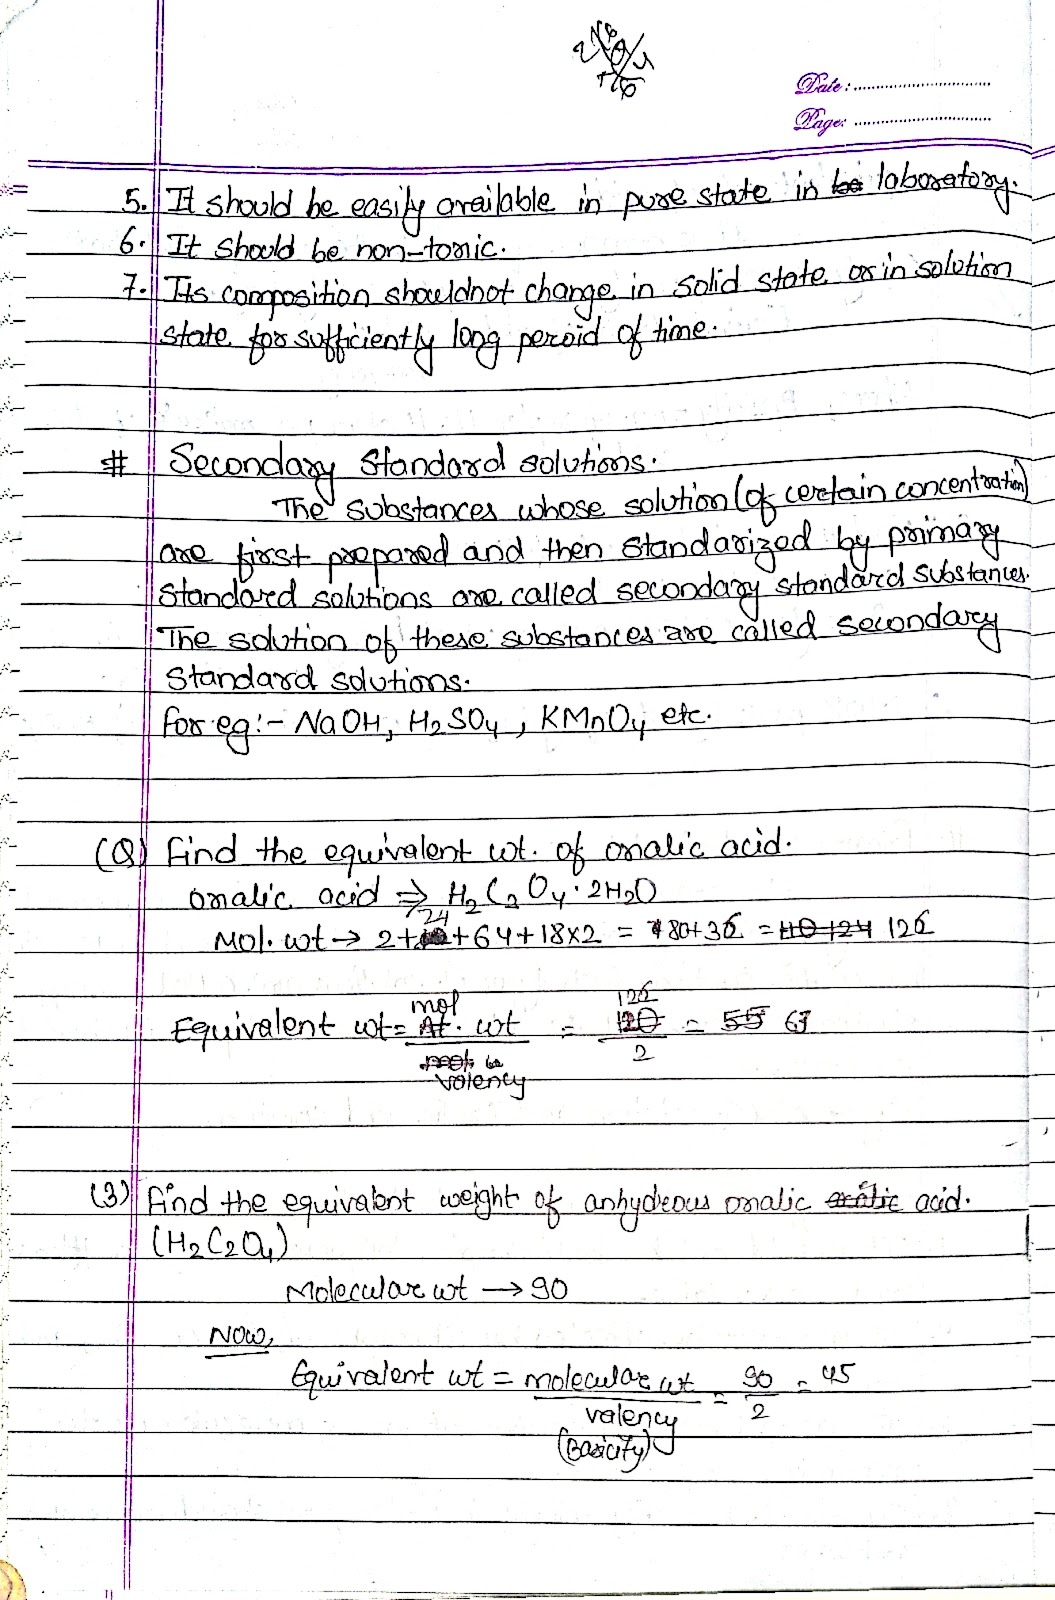 Date:
Page:
5. It should be easily available in pure state in laboratory.
6. It should be non-toxic.
7. Its composition shouldnot change in solid state or in solution
state for sufficiently long peroid of time.
# Secondary Standard solutions.
The substances whose solution (of certain concentration)
are first prepared and then standarized by primary
standard solutions are called secondary standard substances.
The solution of these substances are called secondary
standard solutions.
for eg:- NaOH, H2SO4, KMnO4 etc.
(Q) Find the equivalent wt. of oxalic acid.
oxalic acid ⇒ H2C2O4·2H2O
Mol. wt → 2+24+64+18×2 = 80+36 = 110 124 126
Equivalent wt = mol At. wt / valency = 126 120 / 2 = 55 63
(3) Find the equivalent weight of anhydrous oxalic acid.
(H2C2O4)
Molecular wt → 90
Now,
Equivalent wt = molecular wt / valency = 90 / 2 = 45
(Basicity)